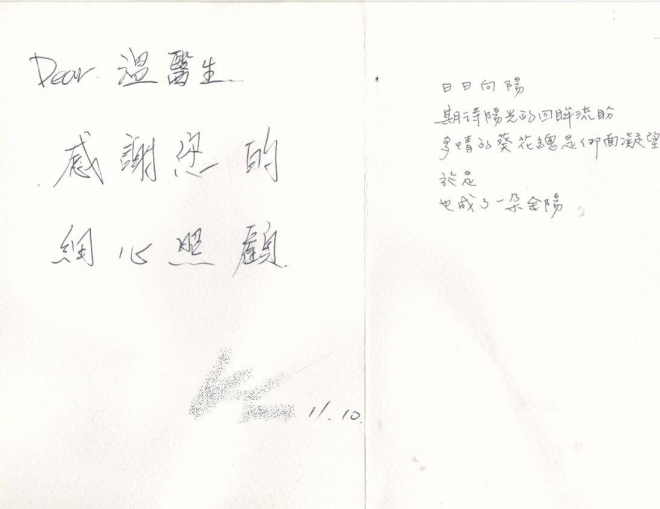 Dear 溫醫生
感謝您的
細心照顧
11.10.
日日向陽
期待陽光的回眸流盼
多情的葵花總是仰面凝望
於是
也成了一朵金陽